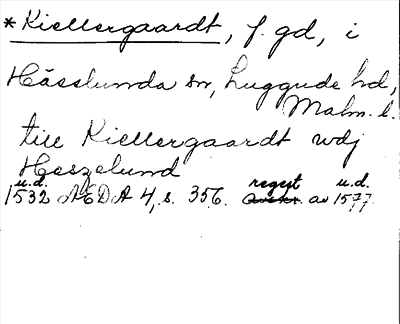 *Kiellergaardt, f. gd, i
Hässlunda sn, Luggude hd,
Malm. l.
till Kiellergaardt wdj
Heszelund
u.d. regest u.d.
1532 AEDA 4, s. 356. av 1577